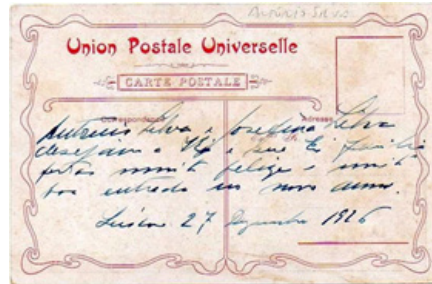 António Silva
Union Postale Universelle
CARTE POSTALE
Correspondance
Adresse
António Silva e Josefina Silva
desejam a e sua família
festas muito felizes e muito
boa entrada no novo anno.
Lisboa 27 Dezembro 1926